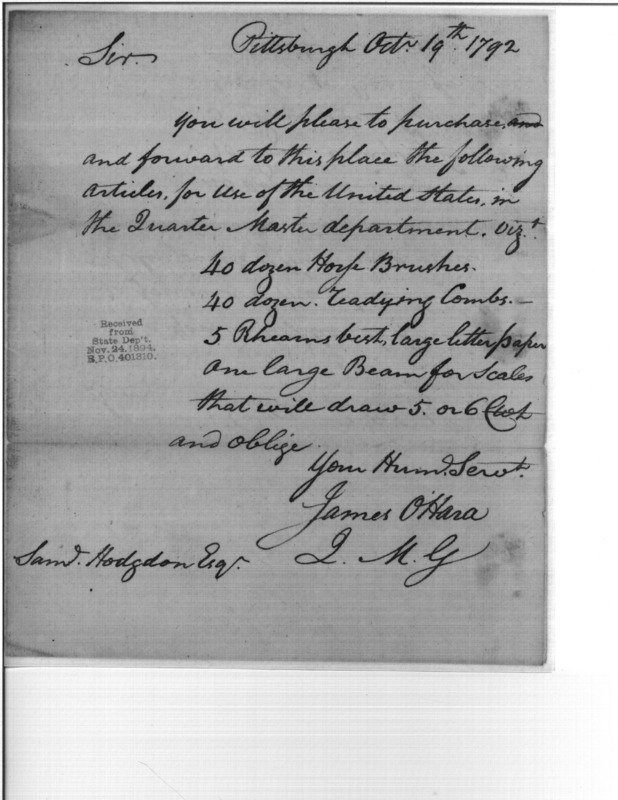 Pittsburgh Octr. 19th. 1792
Sir.
you will please to purchase, and
and forward to this place the following
articles, for use of the United States, in
the Quarter Master department. Vizt.
40 dozen Horse Brushes.
40 dozen. Combs. —
5 Rheams best, large letter paper
one large Beam for Scales
that will draw 5. or 6 Cwt
and oblige
Your Humd. Servt.
James O'Hara
Q. M. G
Saml. Hodgdon Esqr.
Received
from
State Dep't.
Nov. 24, 1894.
R.P.O. 401810.